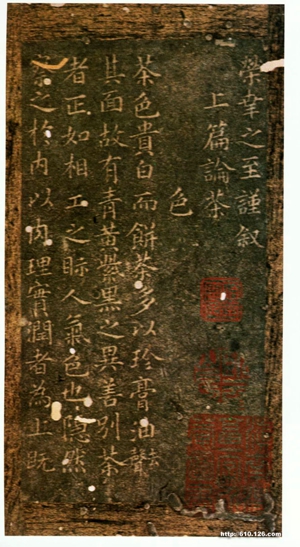 榮幸之至謹叙
上篇論茶
色
茶色貴白而餅茶多以珍膏油去聲
其面故有青黃紫黑之異善別茶
者正如相工之眎人氣色也隱然
察之於內以肉理實潤者為上既
http://610.126.com/